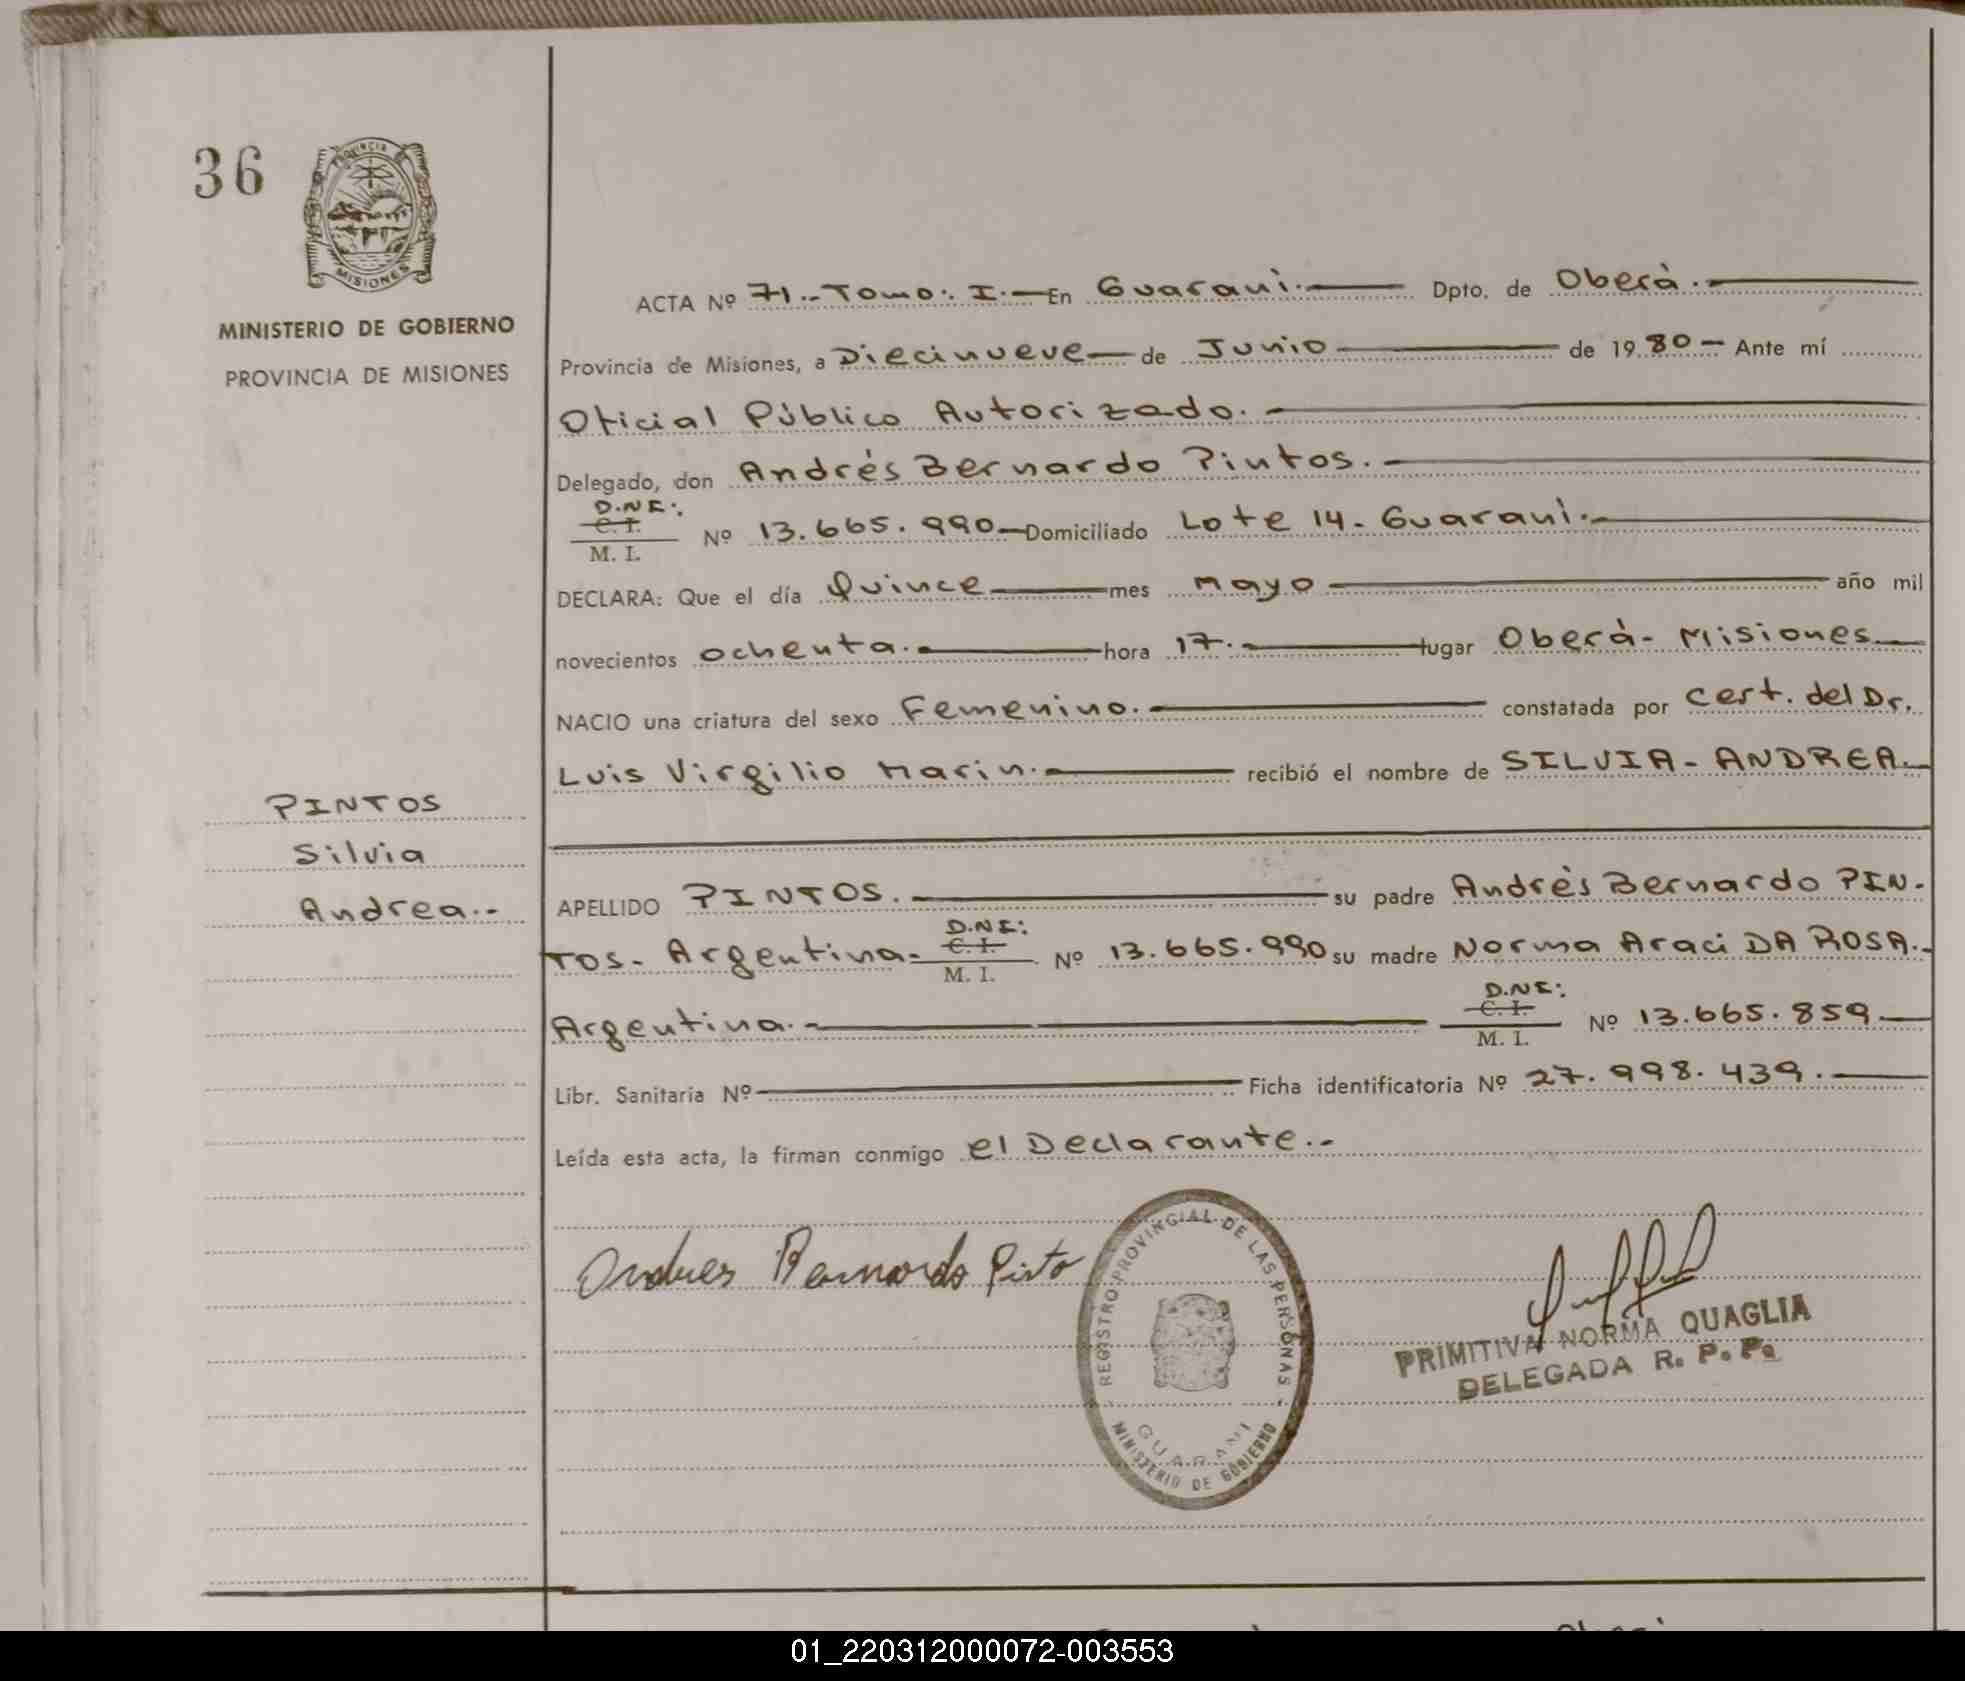 36
PROVINCIA DE
MISIONES
MINISTERIO DE GOBIERNO
PROVINCIA DE MISIONES
PINTOS
Silvia
Andrea.-
ACTA Nº 71.- Tomo: I.- En Guaraní. Dpto. de Oberá.
Provincia de Misiones, a Diecinueve de Junio de 1980 - Ante mí
Oficial Público Autorizado.
Delegado, don Andrés Bernardo Pintos.
D.N.I:
C. I.
M. I.
Nº 13.665.990 Domiciliado Lote 14 - Guaraní.
DECLARA: Que el día Quince mes Mayo año mil
novecientos ochenta. hora 17. lugar Oberá - Misiones
NACIO una criatura del sexo Femenino. constatada por Cert. del Dr.
Luis Virgilio Marin. recibió el nombre de SILVIA - ANDREA.
APELLIDO PINTOS. su padre Andrés Bernardo PIN-
D.N.I:
TOS - Argentina - C. I. Nº 13.665.990 su madre Norma Araci DA ROSA.
M. I.
D.N.I:
Argentina. C. I. Nº 13.665.859
M. I.
Libr. Sanitaria Nº Ficha identificatoria Nº 27.998.439.
Leída esta acta, la firman conmigo el Declarante.-
Andres Bernardo Pinto
REGISTRO PROVINCIAL DE LAS PERSONAS
GUARANI
MINISTERIO DE GOBIERNO
PRIMITIVA NORMA QUAGLIA
DELEGADA R. P. P.
01_220312000072-003553